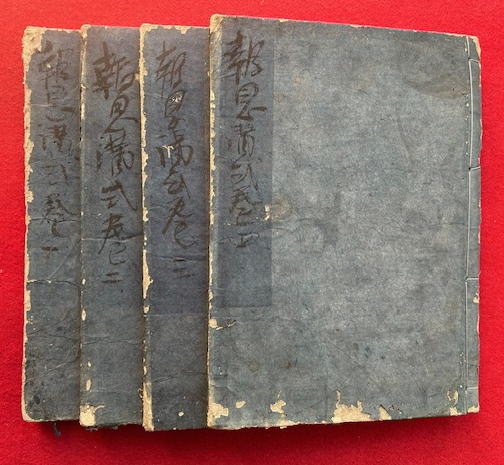 報恩講式巻一
報恩講式巻二
報恩講式巻三
報恩講式巻